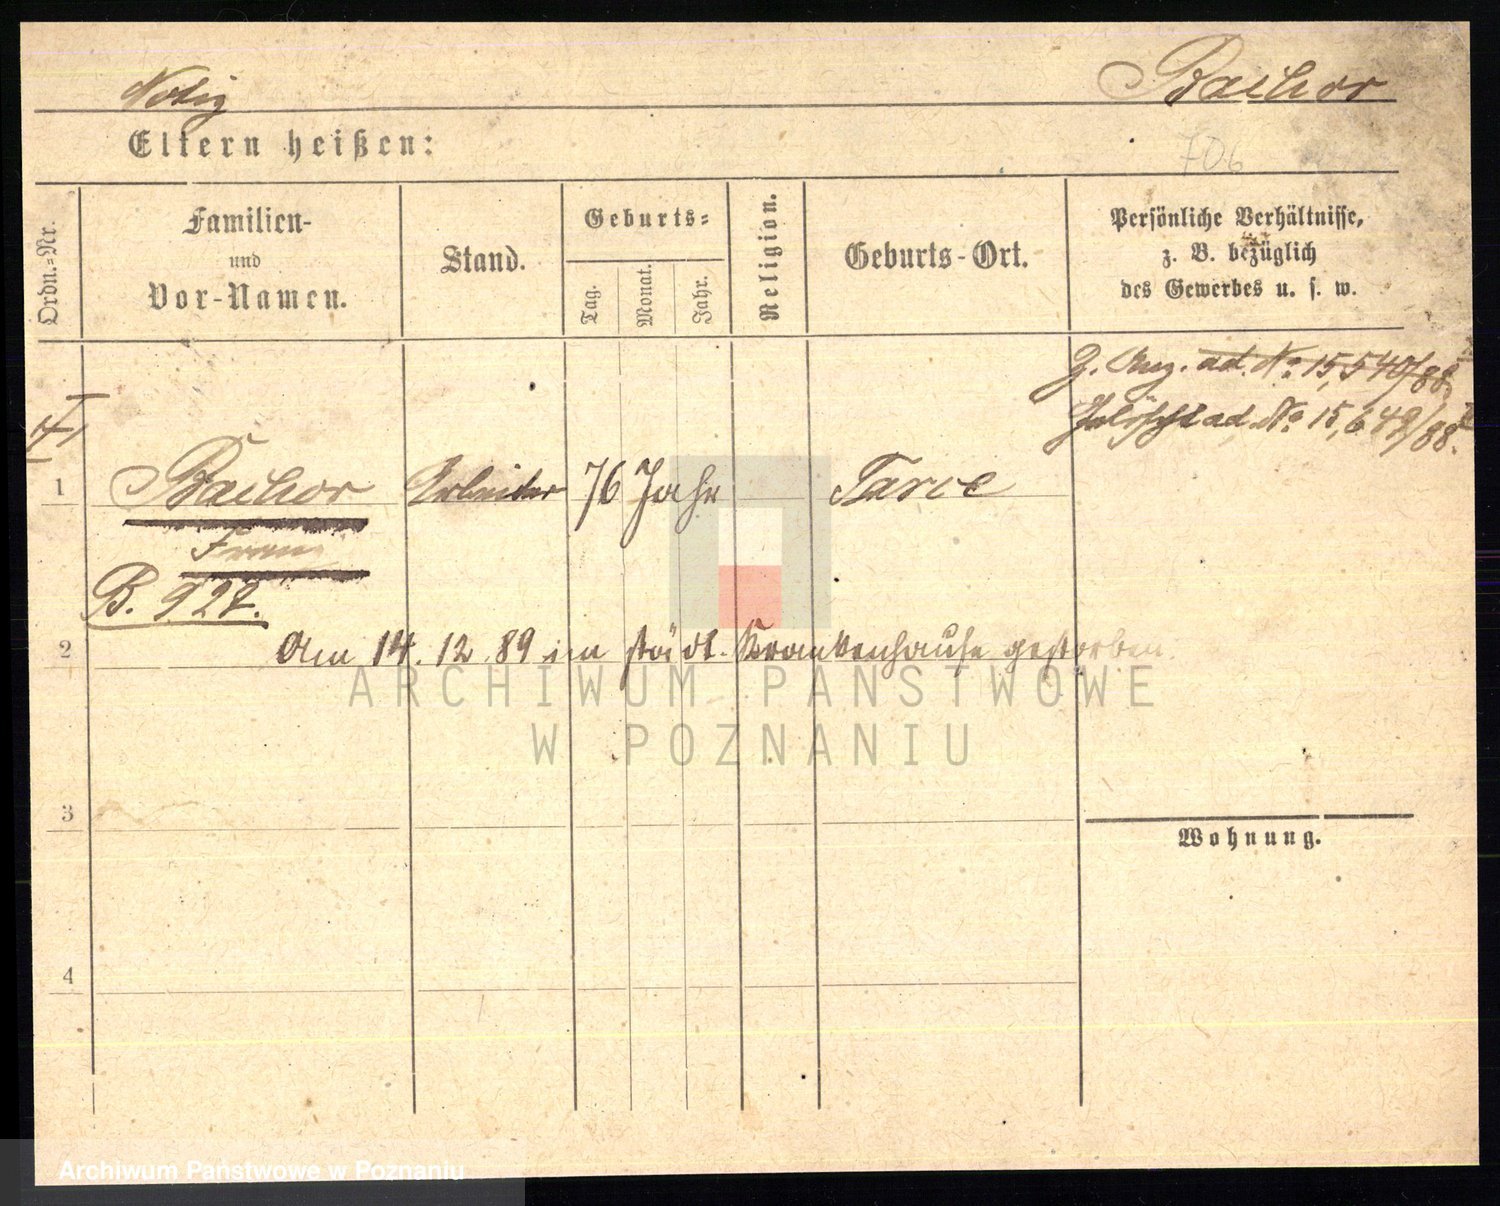 Notiz
Bachor
Eltern heißen:
706
Ordn.=Nr.
Familien-
und
Vor-Namen.
Stand.
Geburts=
Tag.
Monat.
Jahr.
Religion.
Geburts-Ort.
Persönliche Verhältnisse,
z. B. bezüglich
des Gewerbes u. s. w.
ad. No 15,540/88.
Gelöscht ad. No 15,649/88.
1
Bachor
Arbeiter
76 Jahr
Tarce
Franz
B. 927.
2
Am 14. 12. 89 im städt. Krankenhause gestorben.
ARCHIWUM PAŃSTWOWE
W POZNANIU
3
Wohnung.
4
Archiwum Państwowe w Poznaniu